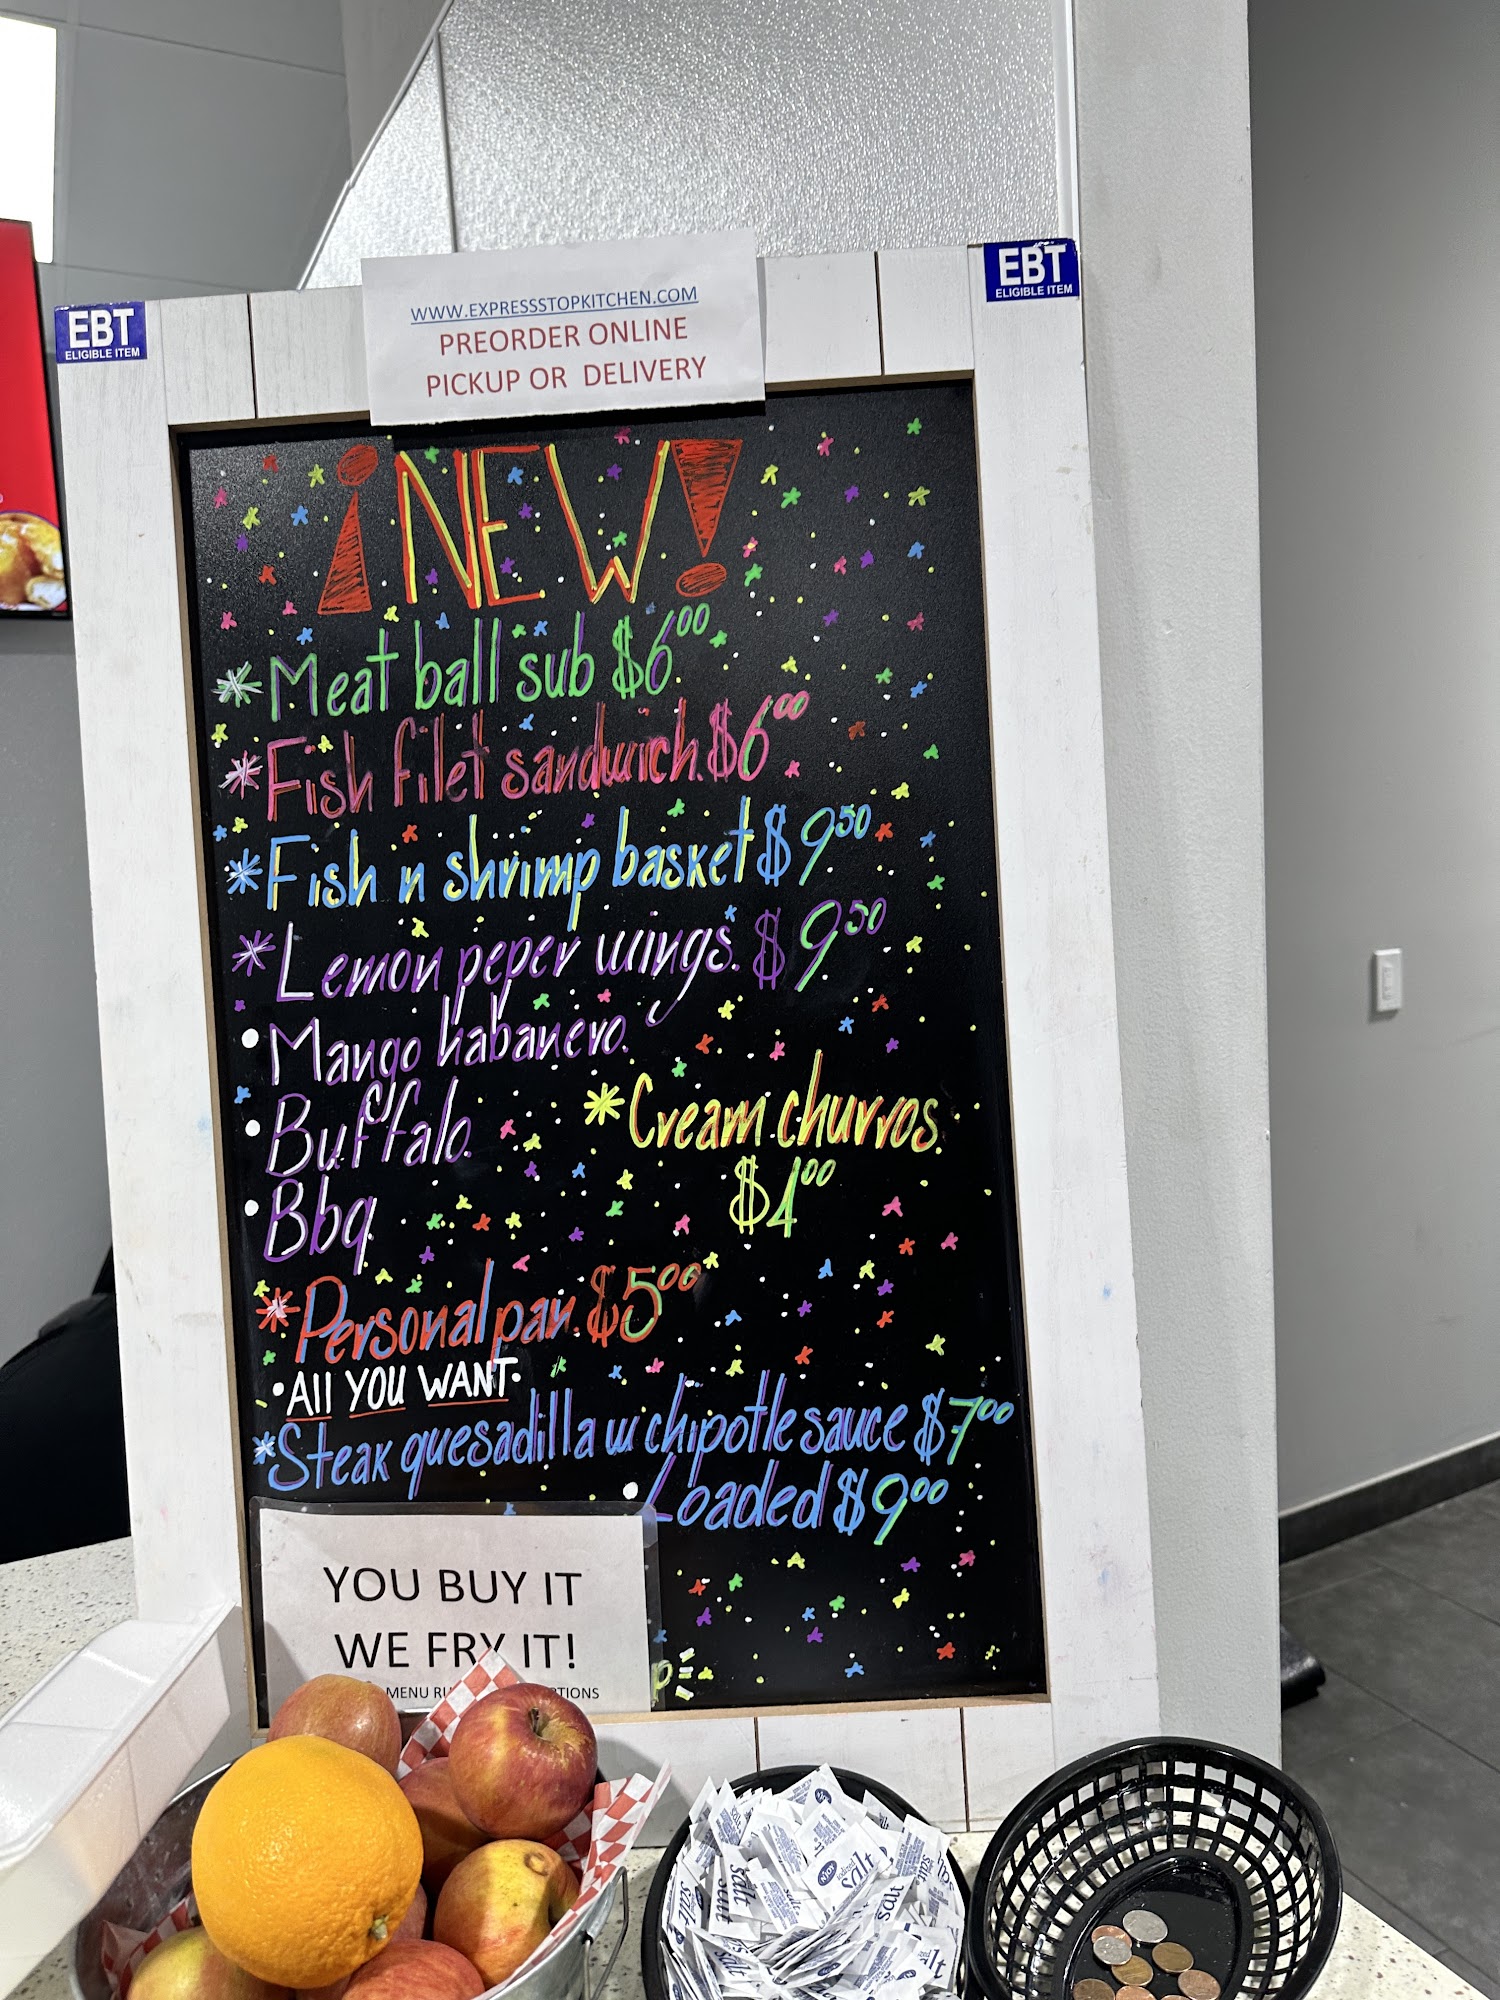 EBT
ELIGIBLE ITEM
EBT
ELIGIBLE ITEM
WWW.EXPRESSSTOPKITCHEN.COM
PREORDER ONLINE
PICKUP OR DELIVERY
¡NEW!
*Meat ball sub $6.00
*Fish filet sandwich. $6.00
*Fish n shrimp basket $9.50
*Lemon peper wings. $9.50
•Mango habanero.
•Buffalo.
•Bbq
*Cream churros.
$4.00
*Personal pan. $5.00
•All YOU WANT•
*Steak quesadilla w chipotle sauce $7.00
•Loaded $9.00
YOU BUY IT
WE FRY IT!
MENU
salt
salt
salt
salt